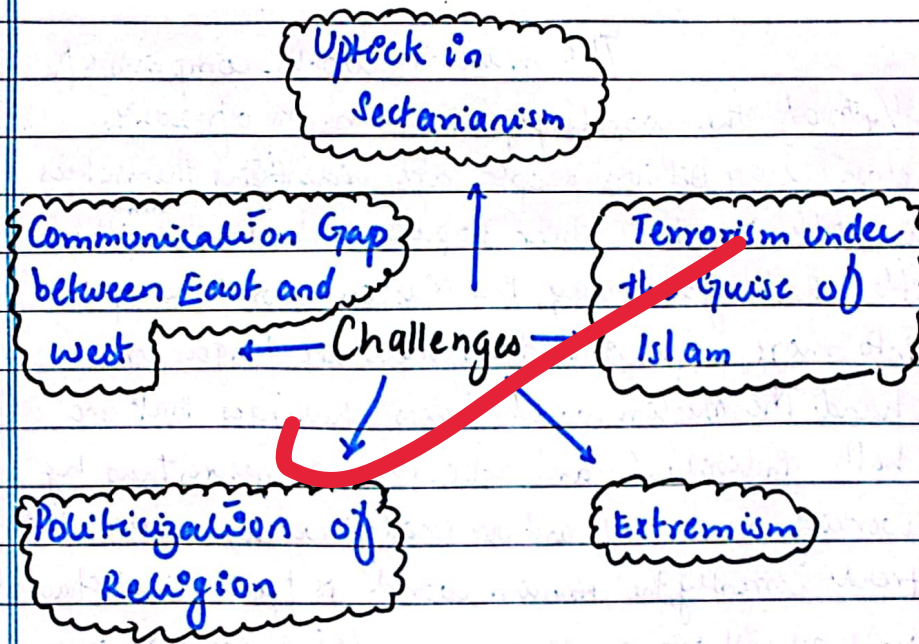 Uptick in
Sectarianism
Communication Gap
between East and
West
Terrorism under
the Guise of
Islam
Challenges
Politicization of
Religion
Extremism